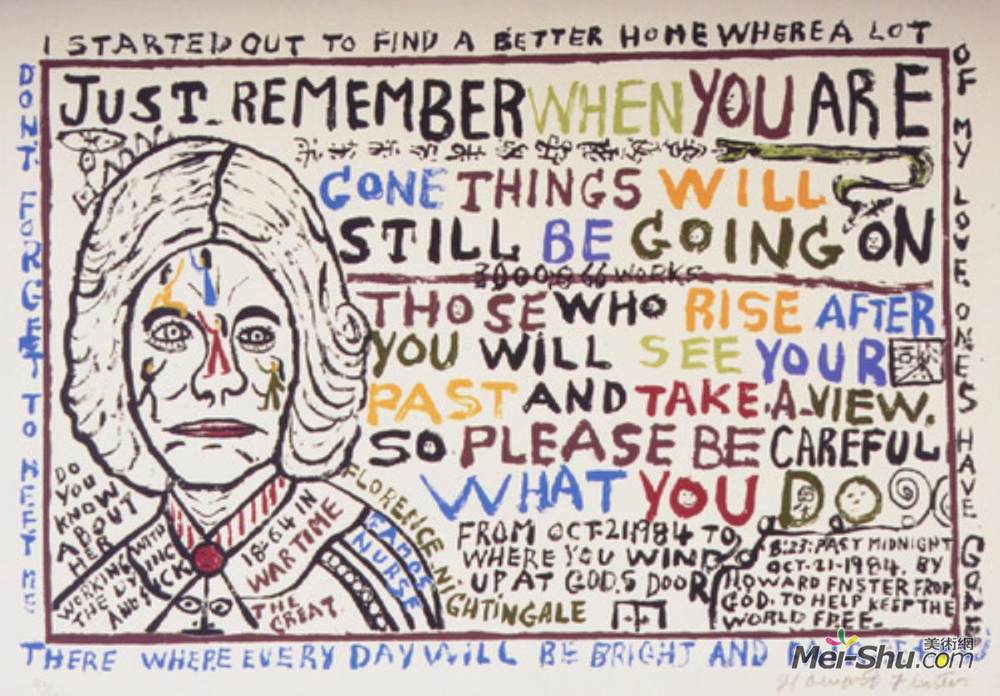 I STARTED OUT TO FIND A BETTER HOME WHERE A LOT
OF MY LOVE ONES HAVE GONE
DONT FORGET TO MEET ME
THERE WHERE EVERY DAY WILL BE BRIGHT AND
JUST REMEMBER WHEN YOU ARE
GONE THINGS WILL
STILL BE GOING ON
WORKS
THOSE WHO RISE AFTER
YOU WILL SEE YOUR
PAST AND TAKE.A-VIEW.
SO PLEASE BE CAREFUL
WHAT YOU DO
FROM OCT-21984 TO
WHERE YOU WIND
UP AT GODS DOOR
8:23:PAST MIDNIGHT
OCT-21-1984. BY
HOWARD FNSTER FROM
GOD. TO HELP KEEP THE
WORLD FREE-
DO
YOU
KNOW
ABOUT
HER
WORKING
WITH
THE
AND
IN
WAR TIME
THE
GREAT.
FLORENCE NIGHTINGALE
NURSE
美術網
Mei-Shu.com